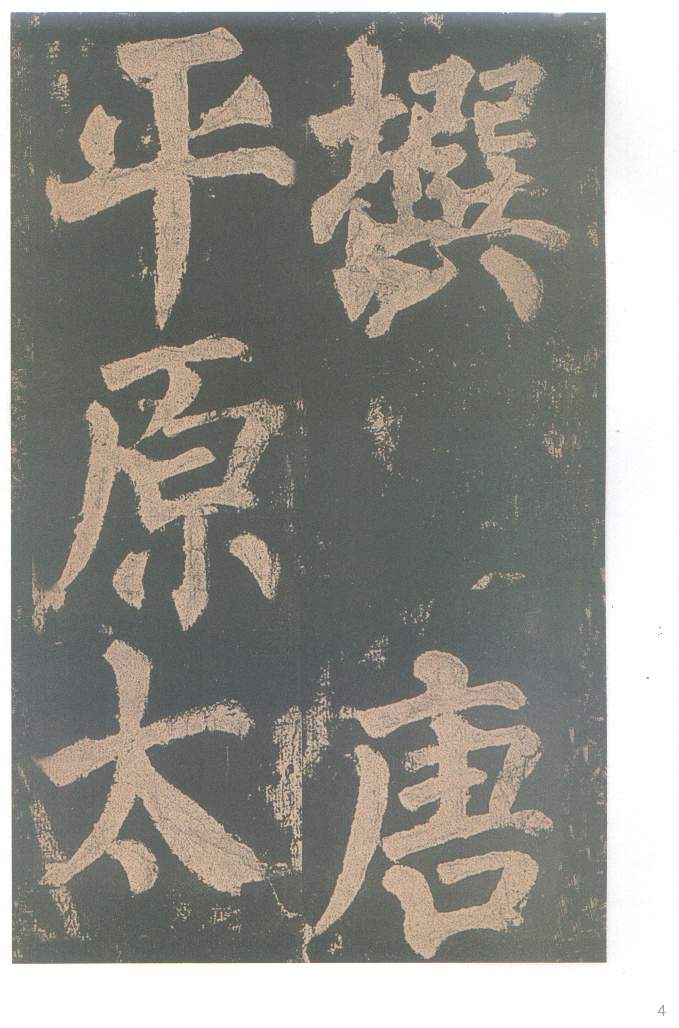 撰唐
平原太
4